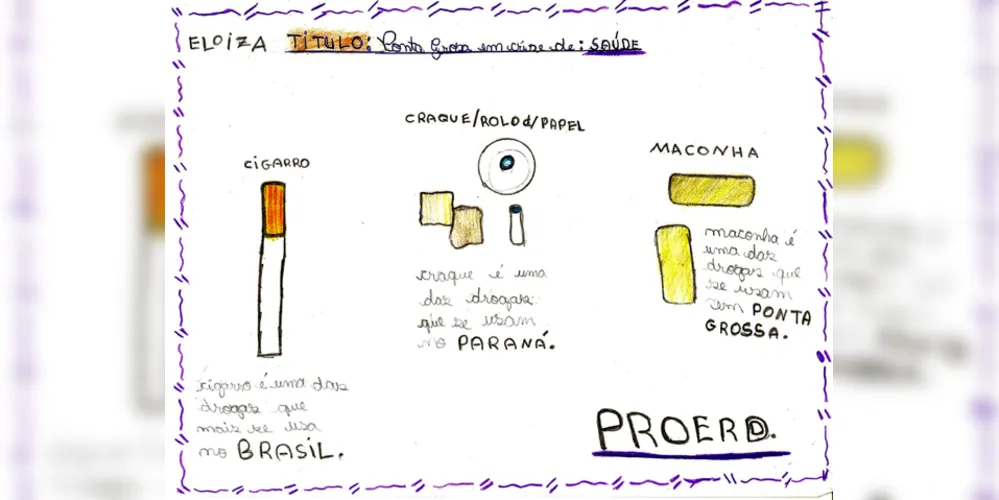 ELOIZA TÍTULO: Ponta Grossa em crise de: SAÚDE
CRAQUE/ROLO d/PAPEL
CIGARRO
MACONHA
craque é uma
das drogas
que se usam
no PARANÁ.
maconha é
uma das
drogas que
se usam
em PONTA
GROSSA.
cigarro é uma das
drogas que
mais se usa
no BRASIL.
PROERD.